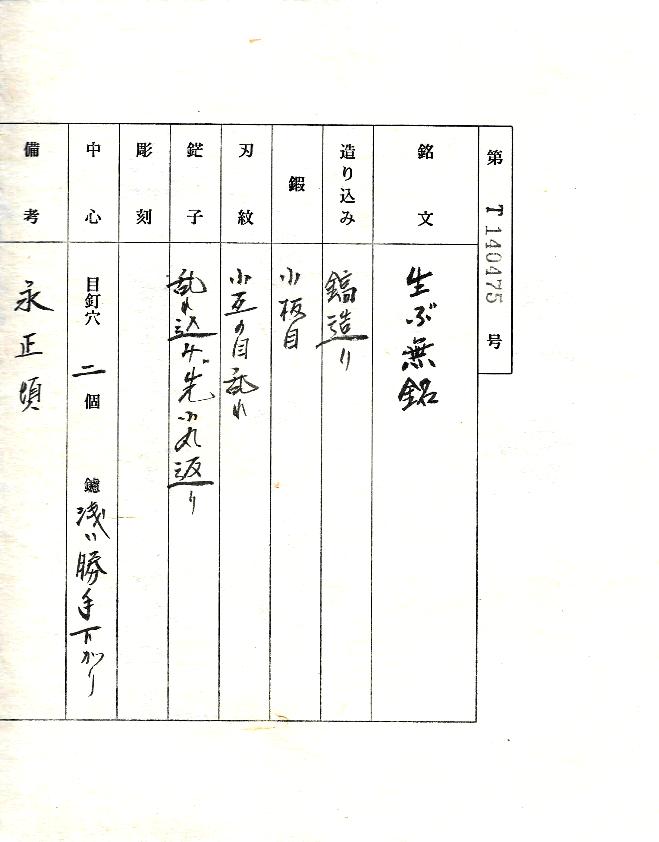 第 T140475 号
銘文
生ぶ無銘
造り込み
鎬造り
鍜
小板目
刃紋
小互の目乱れ
鋩子
乱れ込み先小丸返り
彫刻
中心
目釘穴 二 個
鑢 浅い勝手下がり
備考
永正頃